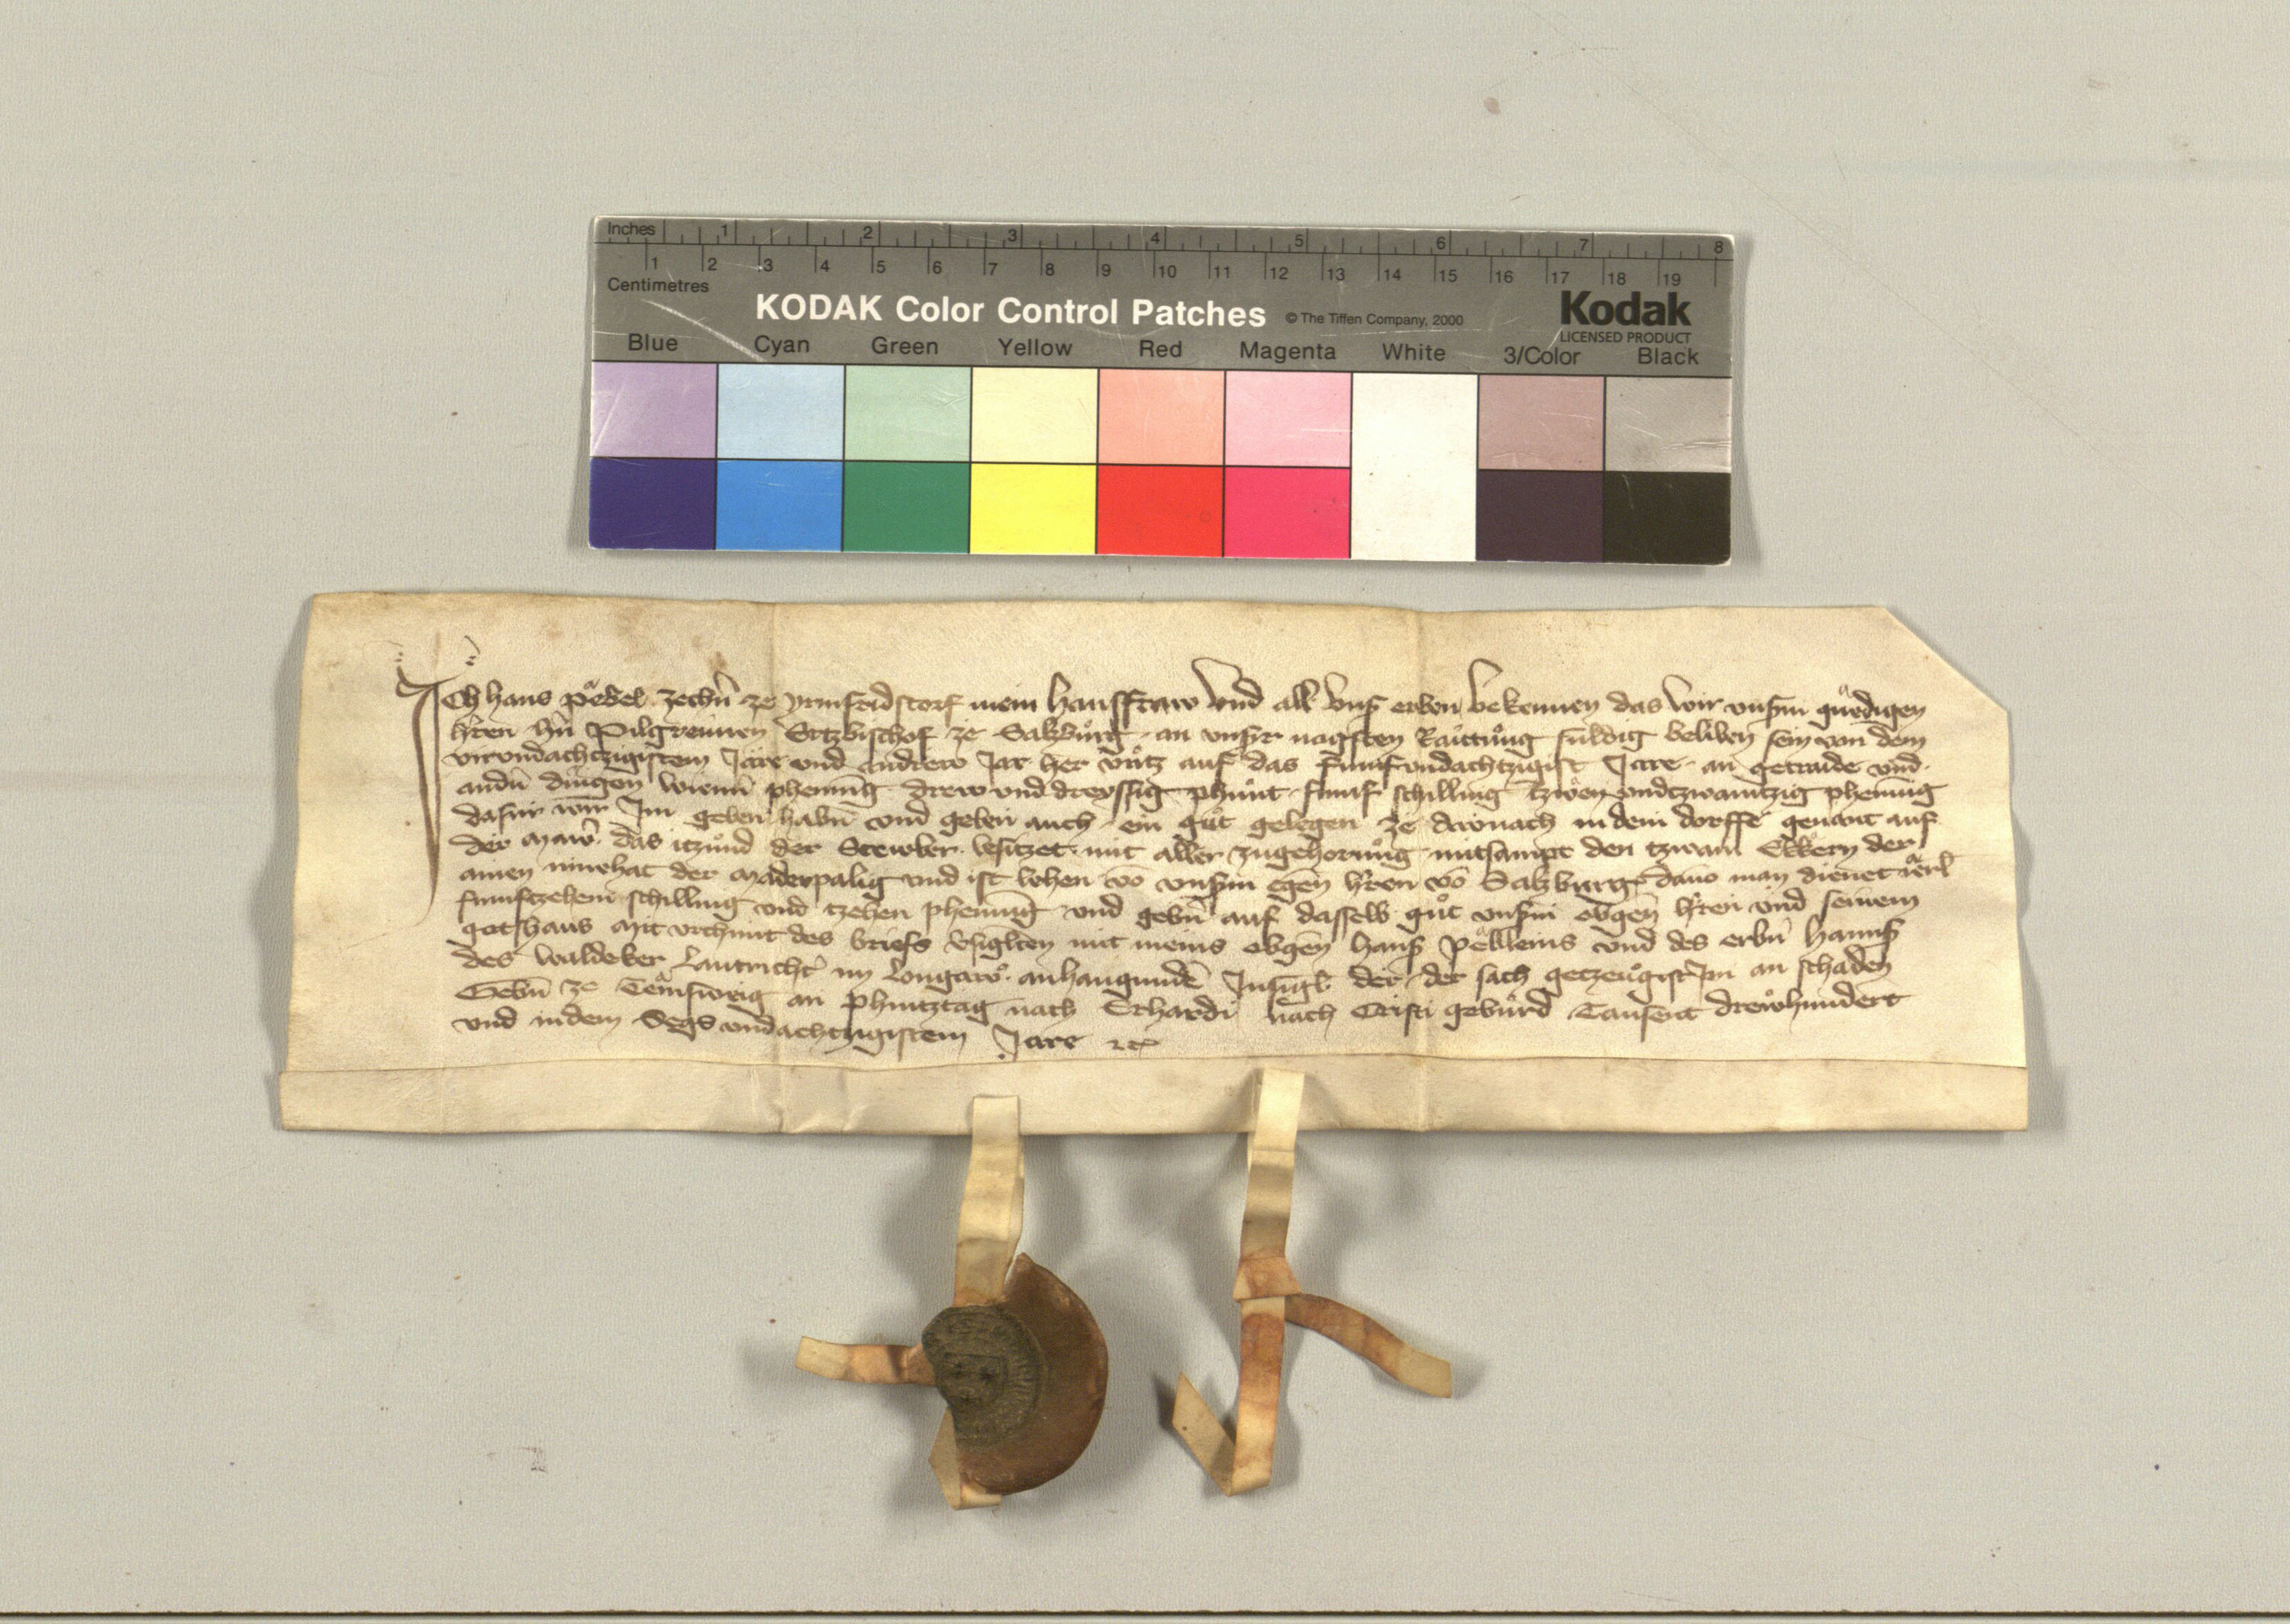 Inches 1 2 3 4 5 6 7 8
1 2 3 4 5 6 7 8 9 10 11 12 13 14 15 16 17 18 19
Centimetres
KODAK Color Control Patches © The Tiffen Company, 2000 Kodak
LICENSED PRODUCT
Blue Cyan Green Yellow Red Magenta White 3/Color Black
Ich hans zechn̄ ze yrmfridstorf mein hausfraw vnd all vns̄ erben bekennen das wir vnsm̄ gnedigen
hr̄en hn̄ Pilgreimen Ertzbischof ze Salzburg an vnsr̄ nagsten Raittung suldig beliben sein von dem
virvndachtzigistem Jare vnd andrew Jar her vntz auf das fumfvndachtzigist Jare an getraide vnd
andn̄ dingen wienn̄ phenning drew vnd dreyssig phunt fumf schilling tzwen vndtzwaintzig phenning
dafur wir Im geben habn̄ vnd geben auch ein gut gelegen ze in dem dorffe genant auf
der das itzund der besitzet mit aller zugehorung mitsampt den tzwain Ekkern der
ainen der vnd ist lehen vō vnsm̄ egen̄ hr̄en vō Salzburg dauō man dienet
fumftzehen schilling vnd tzehen phenning vnd gebn̄ auf dasselb gut vnsm̄ obgen̄ hr̄en vnd seinem
gotshaus mit vrchunt des briefs mit meins obgen̄ hans vnd des erbn̄ hanns
des waldeker Lantricht̄ im Longaw anhangundē Insigl der der sach an schaden
Gebn̄ ze Temsweig an phintztag nach Erhardi nach Cristi geburd Tausent drewhundert
vnd in dem Segs vndachtzigistem Jare